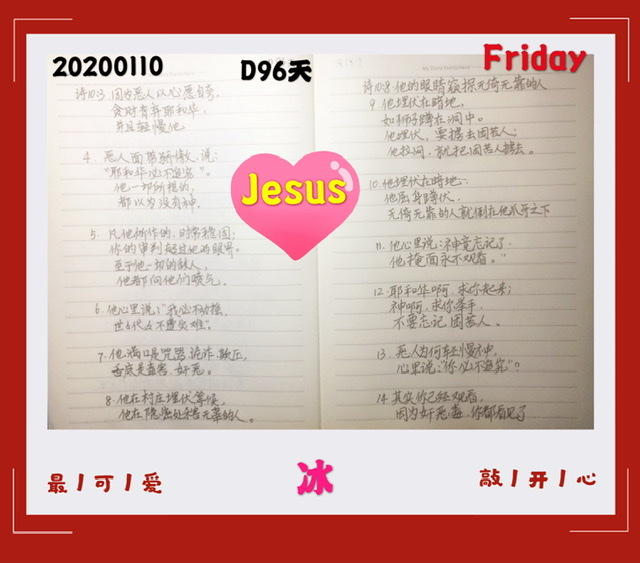 20200110
D96天
Friday
Jesus
诗10:3 因为恶人以心愿自夸,
贪财背弃耶和华,
并且轻慢他
4. 恶人面带骄傲, 说:
“耶和华必不追究”。
他一切所想的,
都以为没有神.
5. 凡他所作的, 时常稳固;
你的审判超过他的眼界.
至于他一切的敌人,
他都向他们喷气。
6. 他心里说:“我必不动摇,
世世代代不遭灾难”.
7. 他满口是咒骂 诡诈 欺压,
舌底是毒害、奸恶。
8. 他在村庄埋伏等候,
他在隐密处杀害无辜的人。
诗10:8 他的眼睛窥探无倚无靠的人
9. 他埋伏在暗地,
如狮子蹲在洞中。
他埋伏, 要掳去困苦人;
他拉网, 就把困苦人掳去。
10. 他埋伏在暗地.
他屈身蹲伏,
无倚无靠的人就倒在他爪牙之下
11. 他心里说:神竟忘记了.
他掩面永不观看。”
12. 耶和华啊, 求你起来;
神啊, 求你举手,
不要忘记 困苦人。
13. 恶人为何轻慢神,
心里说:“你必不追究”?
14 其实你已经观看,
因为奸恶毒 你都看见了
最丨可丨爱
冰
敲丨开丨心